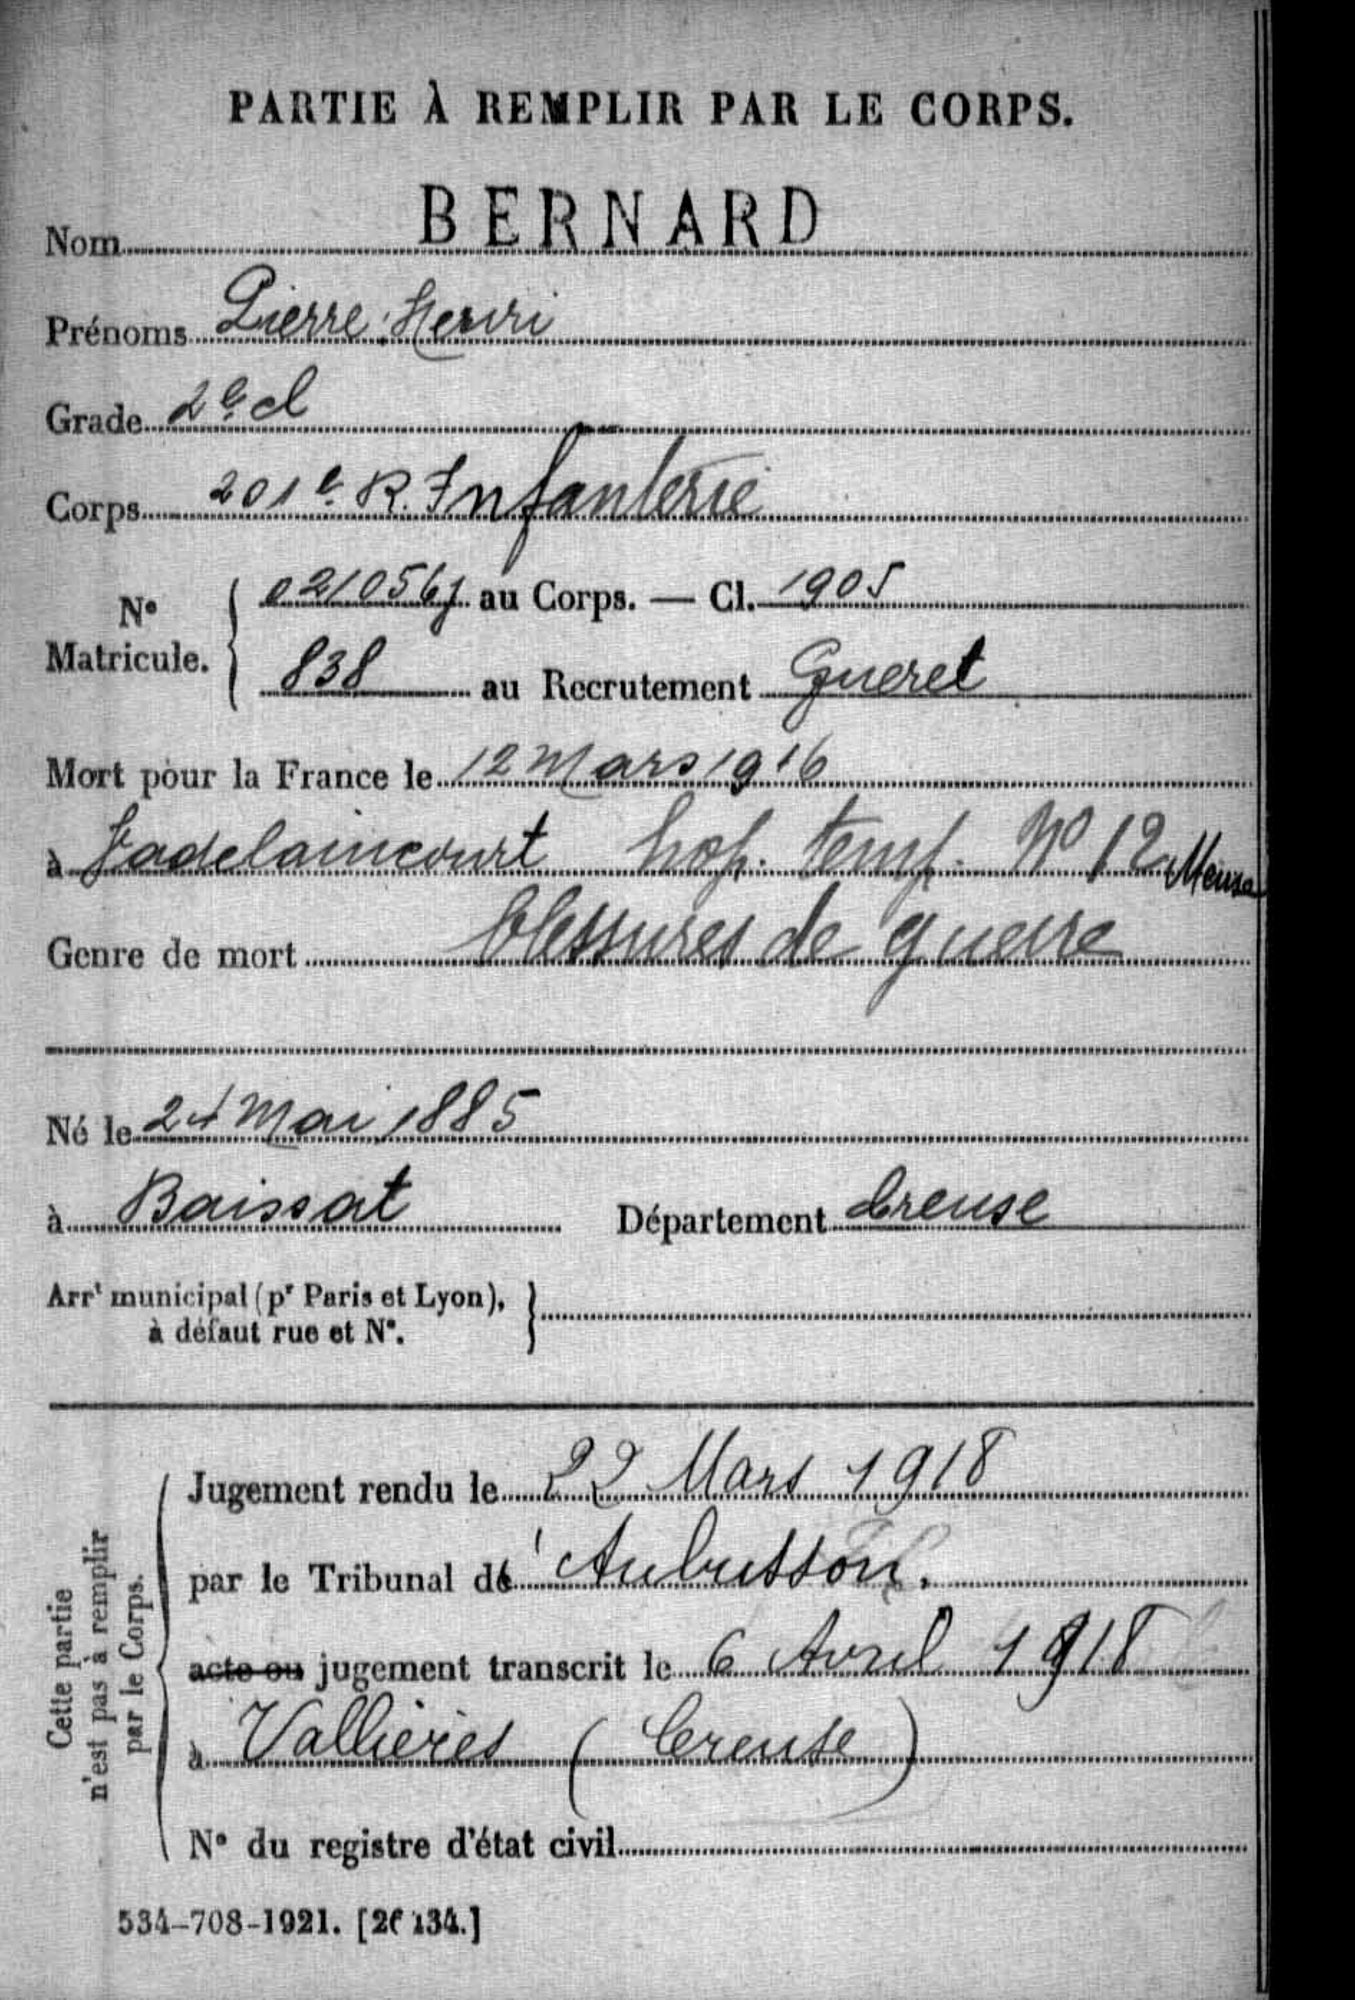 PARTIE À REMPLIR PAR LE CORPS.
Nom BERNARD
Prénoms Pierre Henri
Grade 2e cl
Corps 201e R. Infanterie
N° Matricule. 021056 au Corps. — Cl. 1905
838 au Recrutement Gueret
Mort pour la France le 12 Mars 1916
à Vadelaincourt hop. temp. No 12 Meuse
Genre de mort blessures de guerre
Né le 24 Mai 1885
à Baissat Département Creuse
Arrt municipal (pr Paris et Lyon),
à défaut rue et N°.
Cette partie
n'est pas à remplir
par le Corps.
Jugement rendu le 22 Mars 1918
par le Tribunal d' Aubusson.
acte ou jugement transcrit le 6 Avril 1918
à Vallières (Creuse)
N° du registre d'état civil
534-708-1921. [26134.]